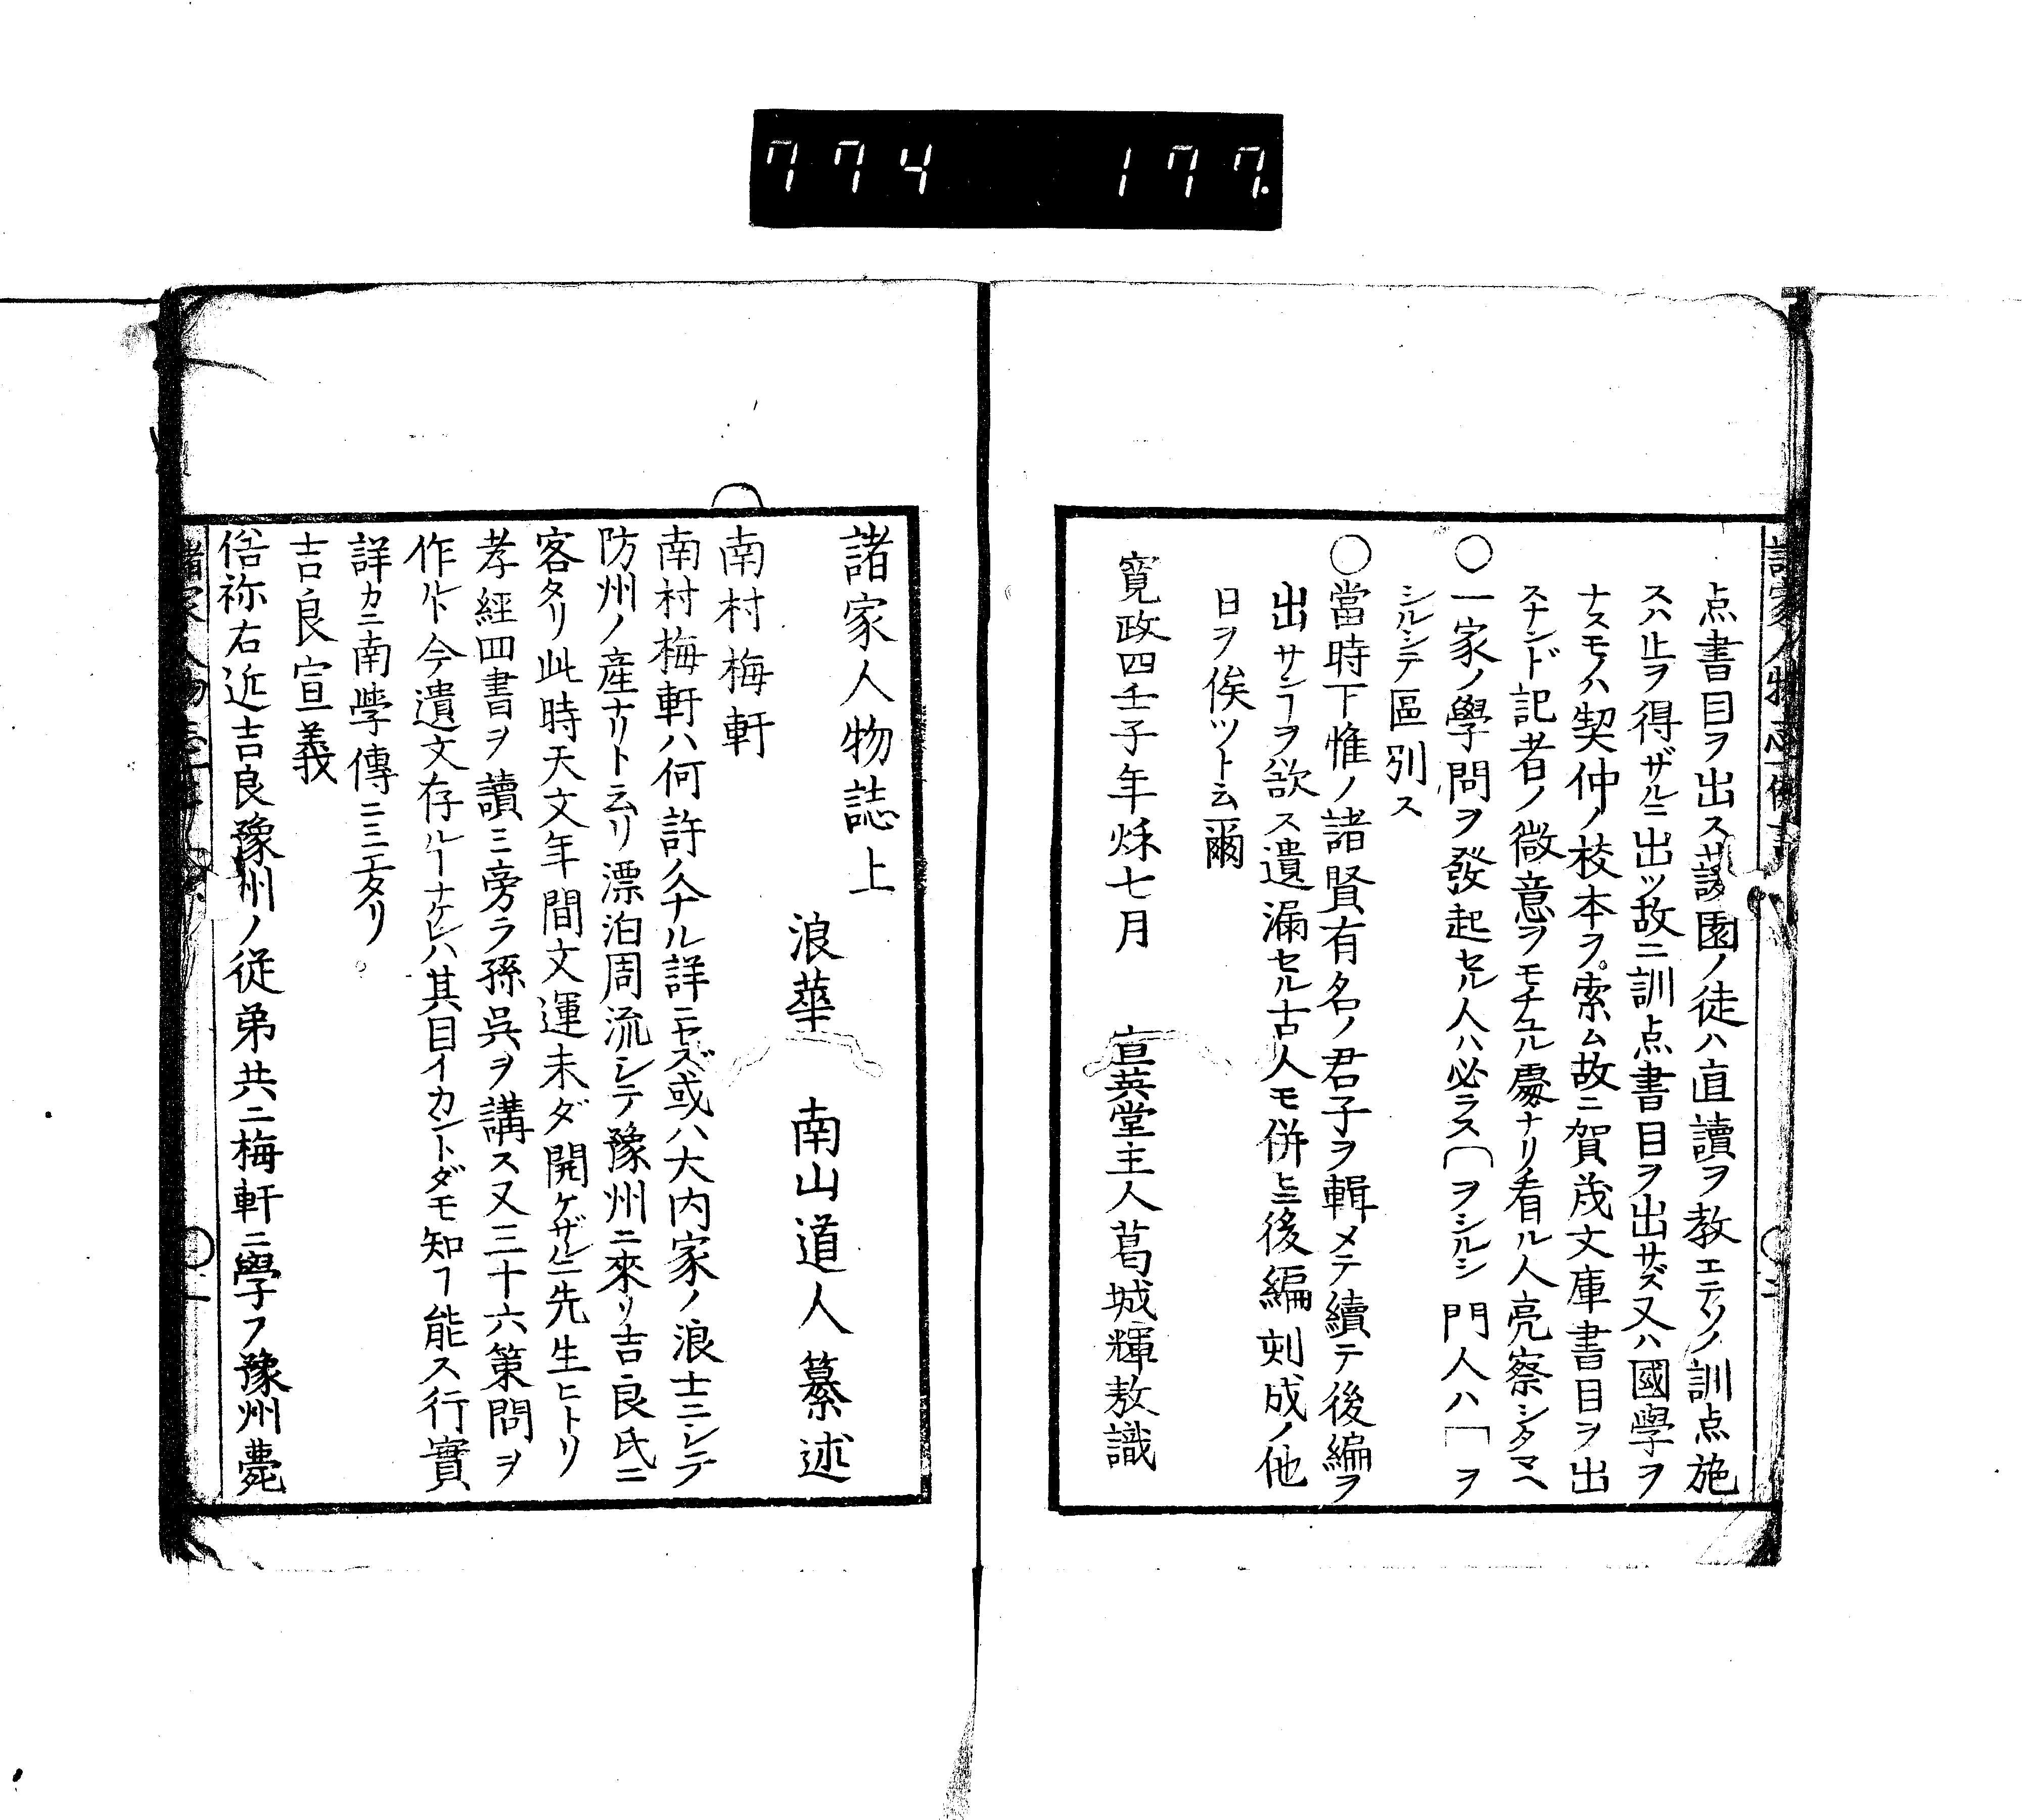 774 177.
点書目ヲ出ス蘐園ノ徒ハ直讀ヲ教エテソノ訓点施
スハ止ヲ得ザルニ出ツ故ニ訓点書目ヲ出サズ又ハ國學ヲ
ナスモノハ契仲ノ校本ヲ索ム故ニ賀茂文庫書目ヲ出
スナンド記者ノ微意ヲモチユル處ナリ看ル人亮察シタマヘ
○一家ノ學問ヲ發起セル人ハ必ラス⌒ヲシルシ門人ハ﹇ヲ
シルシテ區別ス
○當時下惟ノ諸賢有名ノ君子ヲ輯メテ續テ後編ヲ
出サンヿヲ欲ス遺漏セル古人モ併ヒニ後編刻成ノ他
日ヲ俟ツト云爾
寛政四壬子年秌七月 宣英堂主人葛城輝敖識
諸家人物誌上
浪華 南山道人纂述
南村梅軒
南村梅軒ハ何許ノ人ナル詳ニセズ或ハ大内家ノ浪士ニシテ
防州ノ産ナリト云リ漂泊周流シテ豫州ニ來リ吉良氏ニ
客タリ此時天文年間文運未ダ開ケザルニ先生ヒトリ
孝經四書ヲ讀ミ旁ラ孫呉ヲ講ス又三十六策問ヲ
作ルト今遺文存ルヿナケレハ其目イカントダモ知ヿ能ス行實
詳カニ南學傳ニミエタリ
吉良宣義
俗祢右近吉良豫州ノ從弟共ニ梅軒ニ學フ豫州薨